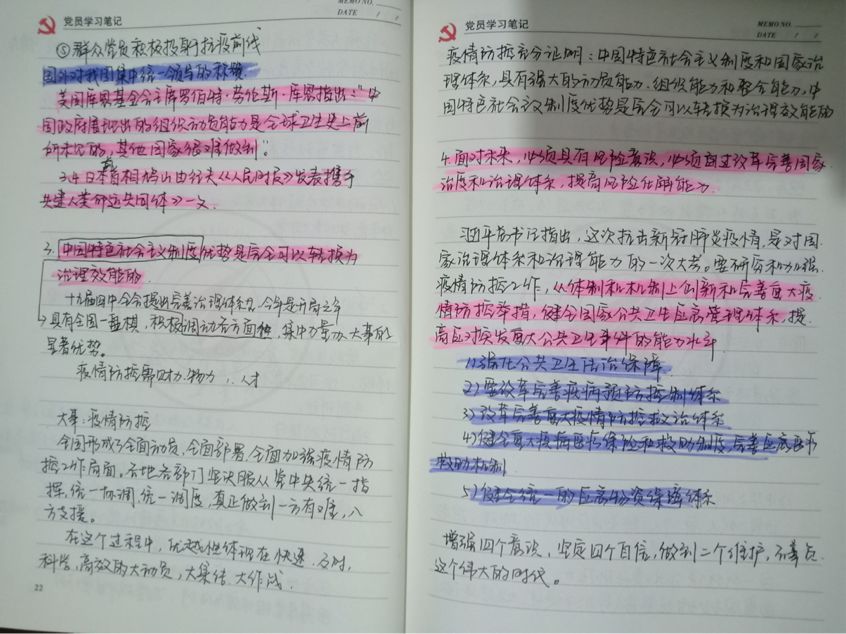 党员学习笔记
MEMO NO.
DATE / /
⑤群众党员积极投身抗疫前线
国外对我国集中统一领导的称赞.
美国库恩基金会主席罗伯特·劳伦斯·库恩指出:"中
国政府展现出的组织动员能力是全球卫生史上前
所未见的,其他国家很难做到".
3.4日本首相鸠山由纪夫《人民时报》发表携手
共建人类命运共同体》一文.
3.中国特色社会主义制度优势是完全可以转换为
治理效能的.
十九届四中全会提出完善治理体系,今年是开局之年
具有全国一盘棋,积极调动各方面,集中力量办大事的
显著优势。
疫情防控需财力、物力、人才
大事:疫情防控
全国形成了全面动员,全面部署,全面加强疫情防
控工作局面。各地各部门坚决服从党中央统一指
挥,统一协调,统一调度,真正做到一方有难,八
方支援。
在这个过程中,优越性体现在快速.及时,
科学,高效的大动员,大集结,大作战.
22
党员学习笔记
MEMO NO.
DATE / /
疫情防控充分证明:中国特色社会主义制度和国家治
理体系,具有强大的动员能力、组织能力和整合能力,中
国特色社会主义制度优势是完全可以转换为治理效能的
4.面对未来,必须具有风险意识,必须通过改革完善国家
治理和治理体系,提高风险化解能力.
习近平总书记指出,这次抗击新冠肺炎疫情,是对国
家治理体系和治理能力的一次大考。要研究和加强
疫情防控工作,从体制和机制上创新和完善重大疫
情防控举措,健全国家公共卫生应急管理体系,提
高应对突发重大公共卫生事件的能力水平
1)强化公共卫生法治保障
2)要改革完善疾病预防控制体系
3)改革完善重大疫情防控救治体系
4)健全重大疾病医疗保险和救助制度,完善应急医疗
救助机制
5)健全统一的应急物资保障体系
增强四个意识,坚定四个自信,做到二个维护,不辜负
这个伟大的时代。